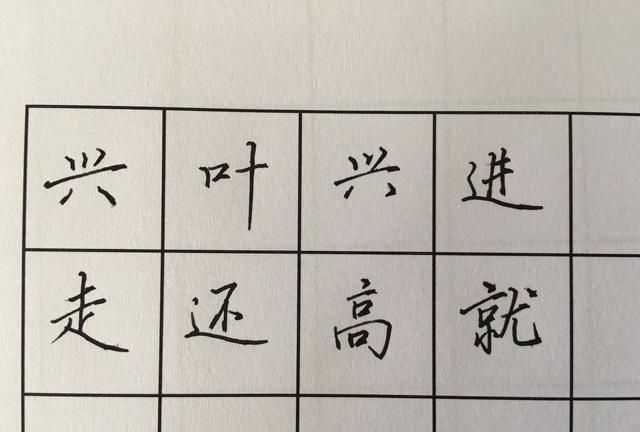 兴叶兴进
走还高就